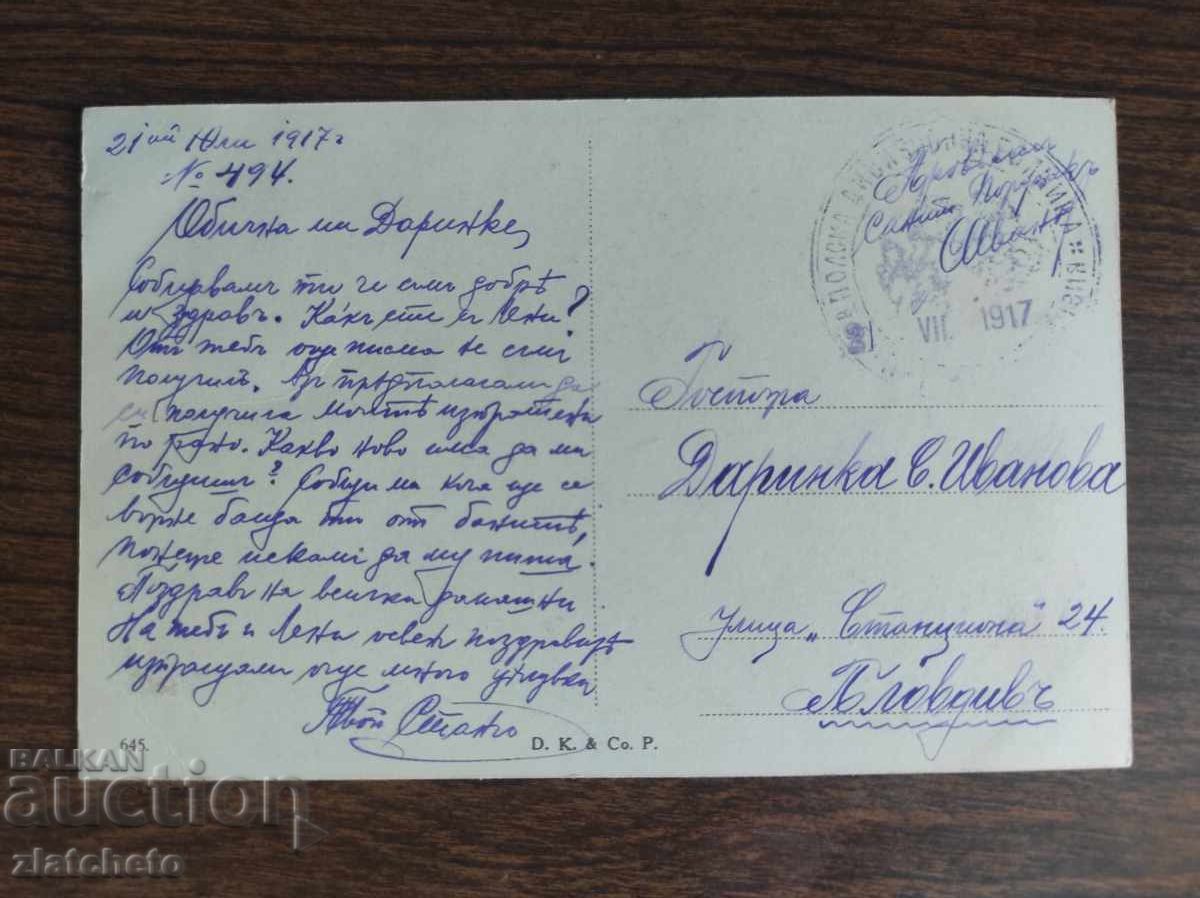 21ий Юли 1917г
№ 494.
Обична ми Даринке,
Събщавамъ ти че съмъ добрѣ
и здравъ. Какъ сте съ Лени?
Отъ тебъ още писма не съмъ
получилъ. Азъ прѣдполагамъ да
си получила моитѣ изпратени
по рано. Какво ново има да ми
съобщишъ? Съобщи ма кога ще се
върне баща ти от банитѣ,
понеже искамъ да му пиша.
Поздравъ на всички домашни
На тебъ и Лени освен поздравътъ
изпращамъ още много цѣлувки
Твой Станчо
645.
D. K. & Co. P.
Провѣрилъ
Санит. Подпор.
Иванъ
ПОЛСКА
VII. 1917
Госпожа
Даринка С. Иванова
Улица „Станциона" 24.
Пловдивъ
BALKAN
auction
zlatcheto